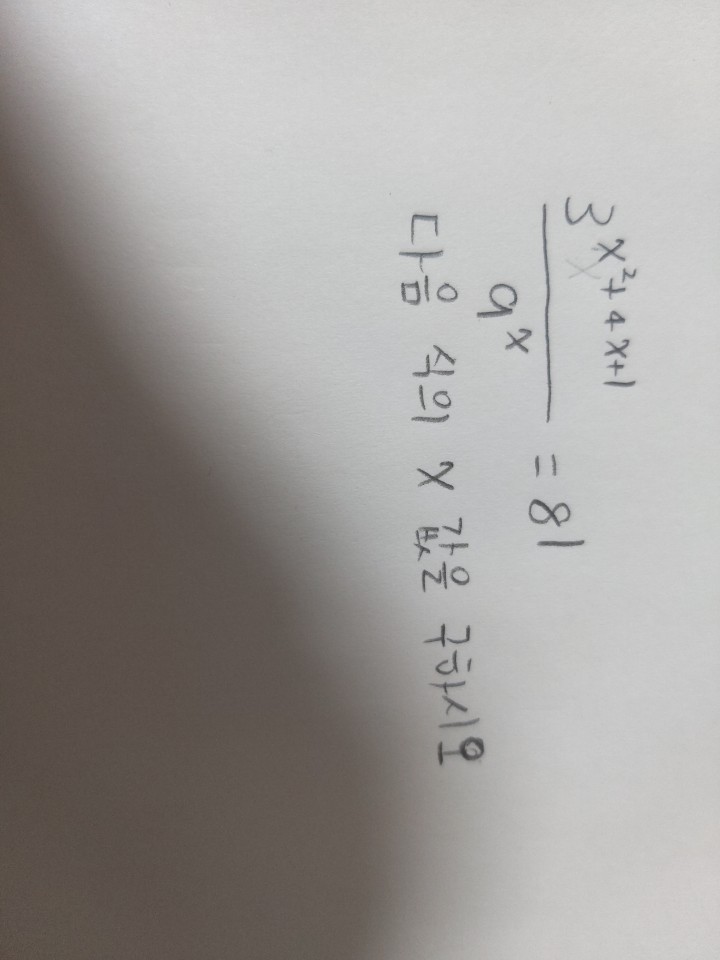 3^{x²+4x+1}
/ 9^x = 81
다음 식의 x 값을 구하시오